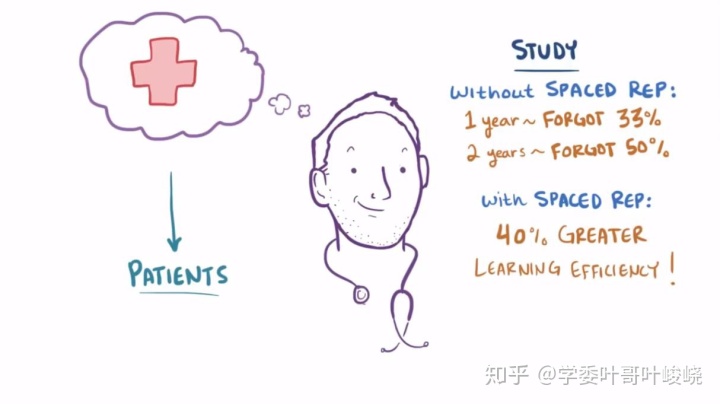 STUDY
without SPACED REP:
1 year ~ FORGOT 33%
2 years ~ FORGOT 50%
with SPACED REP:
40% GREATER
LEARNING EFFICIENCY!
PATIENTS
知乎 @学委叶哥叶峻峣